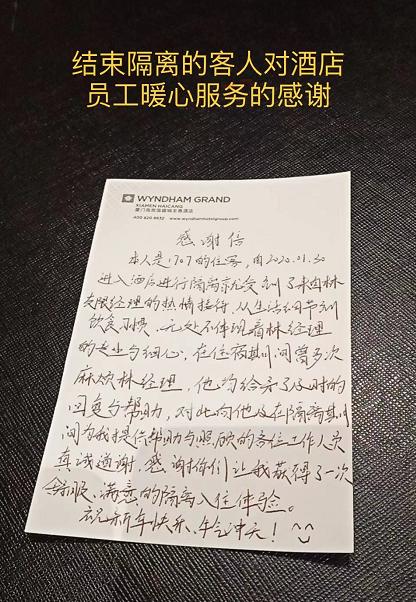 结束隔离的客人对酒店
员工暖心服务的感谢
WYNDHAM GRAND
XIAMEN HAICANG
厦门海沧温德姆至尊酒店
400 820 9932 www.wyndhamhotelgroup.com
感谢信
本人是1707的住客,自2020.01.30
进入酒店进行隔离就受到了来自林
经理的热情接待,从生活细节到
饮食习惯,无处不体现着林经理
的专业与细心,在住宿期间曾多次
麻烦林经理,他均给予了及时的
回复与帮助,对此向他及在隔离期
间为我提供帮助与照顾的各位工作人员
真诚道谢,感谢你们让我获得了一次
舒服、满意的隔离入住体验。
祝新年快乐、牛气冲天!